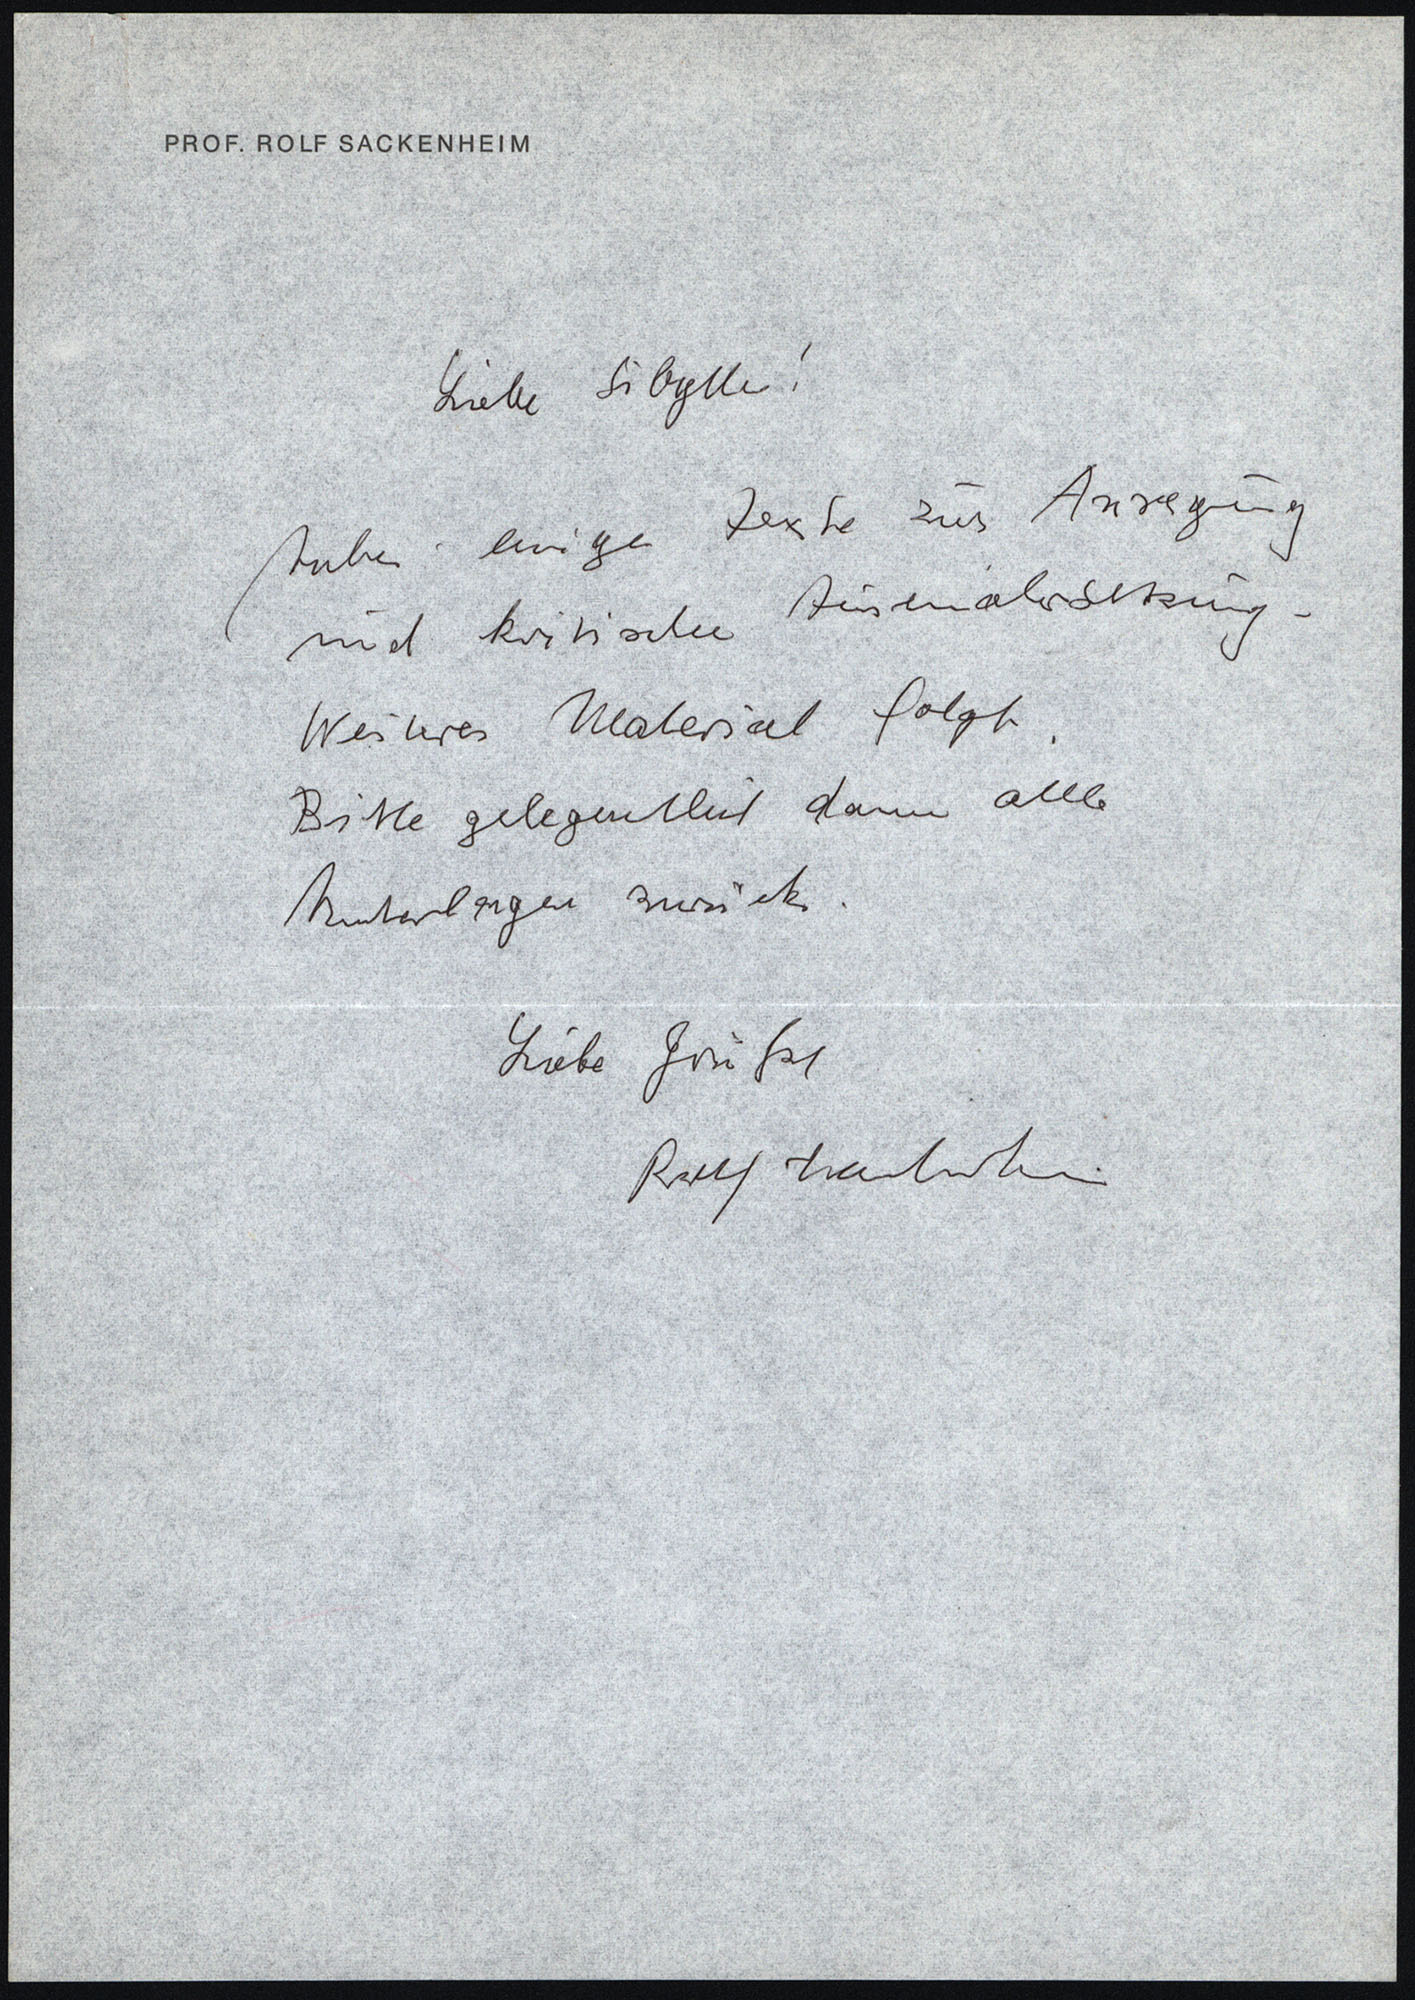 PROF. ROLF SACKENHEIM
Liebe Sibylle!
Anbei einige Texte zur Anregung
und kritischen Auseinandersetzung -
Weiteres Material folgt.
Bitte gelegentlich dann alle
Unterlagen zurück.
Liebe Grüße
Rolf Sackenheim